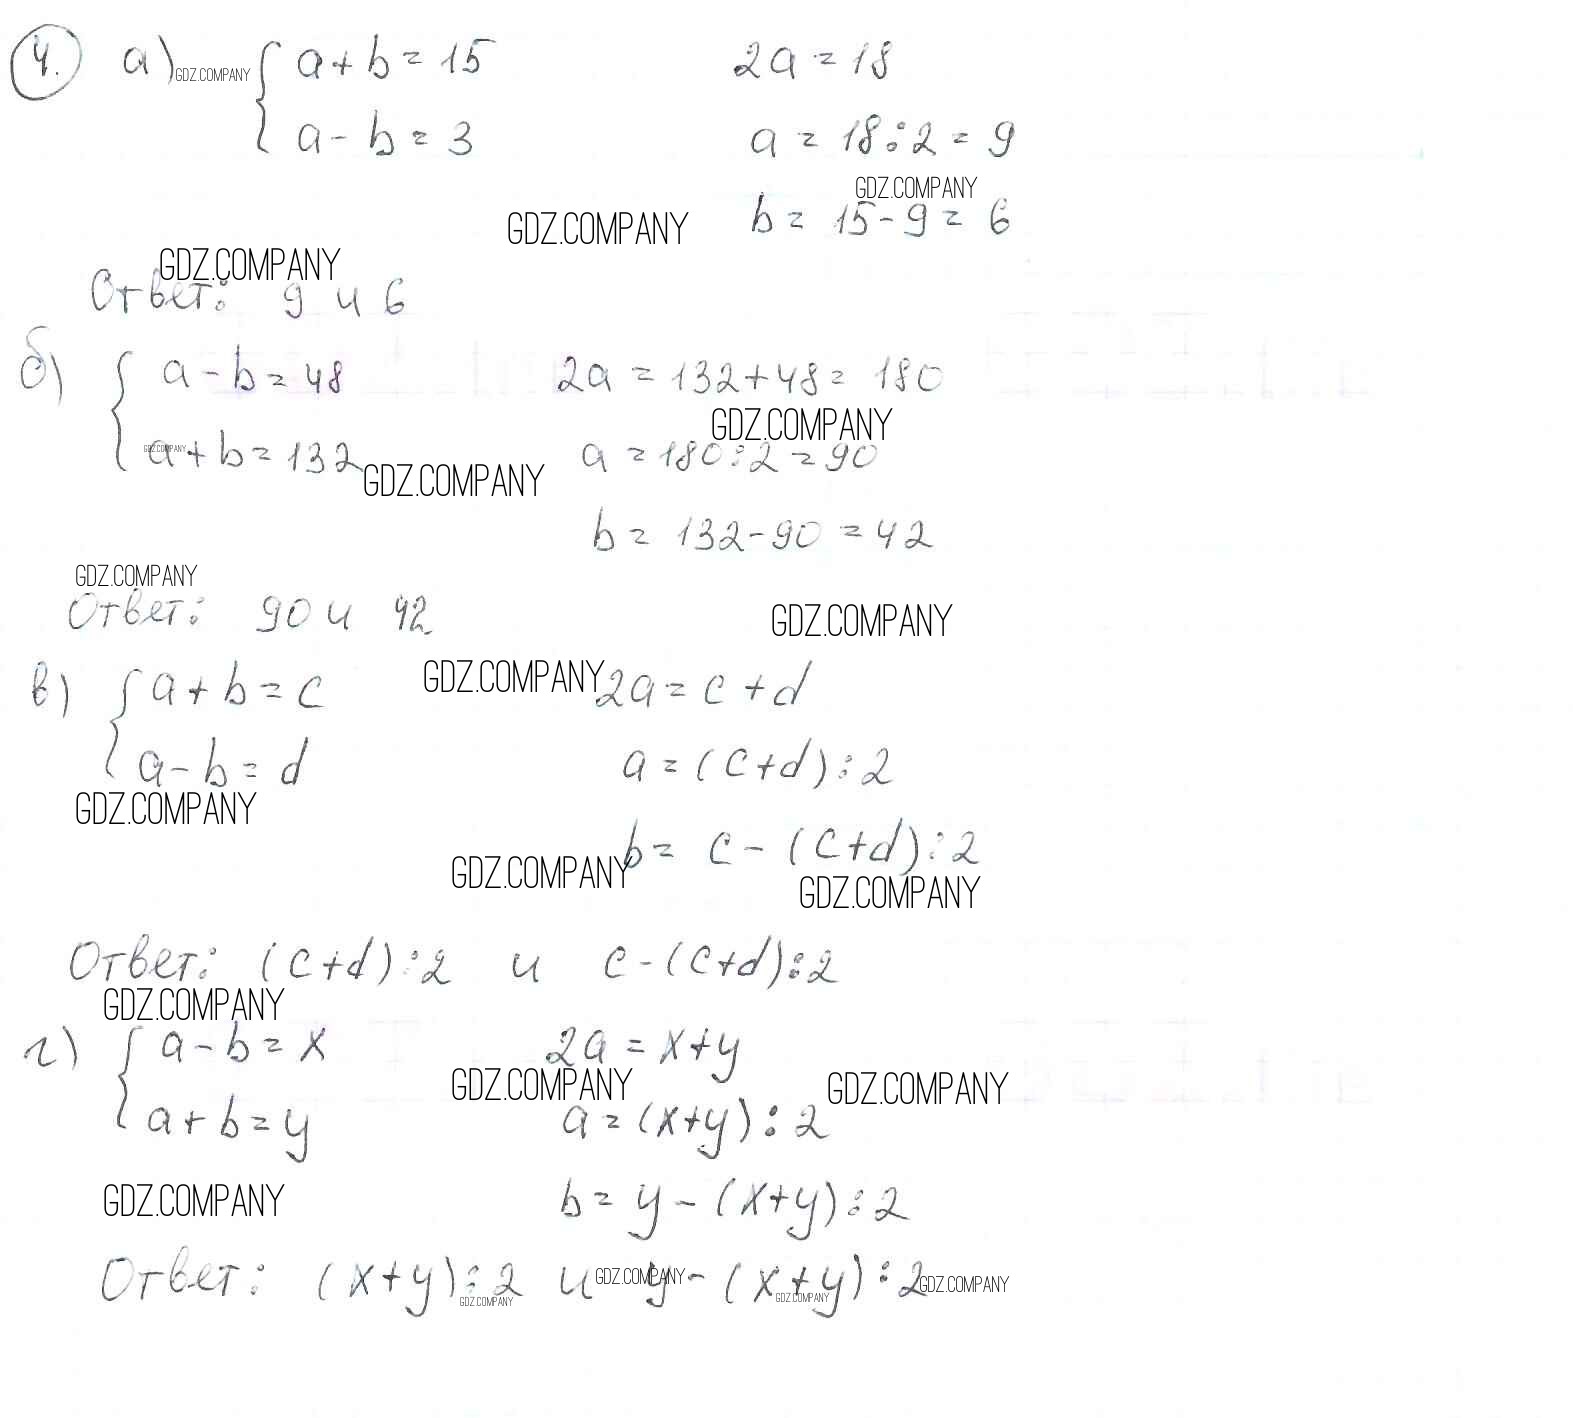 4. а) GDZ.COMPANY { a + b = 15    2a = 18
a - b = 3    a = 18 : 2 = 9
GDZ.COMPANY
GDZ.COMPANY    b = 15 - 9 = 6
GDZ.COMPANY
Ответ: 9 и 6
б) { a - b = 48    2a = 132 + 48 = 180
GDZ.COMPANY
GDZ.COMPANY a + b = 132    a = 180 : 2 = 90
GDZ.COMPANY
b = 132 - 90 = 42
GDZ.COMPANY
Ответ: 90 и 42
GDZ.COMPANY
в) { a + b = c    GDZ.COMPANY 2a = c + d
a - b = d    a = (c + d) : 2
GDZ.COMPANY
b = c - (c + d) : 2
GDZ.COMPANY    GDZ.COMPANY
Ответ: (c + d) : 2 и c - (c + d) : 2
GDZ.COMPANY
г) { a - b = x    2a = x + y
GDZ.COMPANY    GDZ.COMPANY
a + b = y    a = (x + y) : 2
GDZ.COMPANY    b = y - (x + y) : 2
Ответ: (x + y) : 2 и GDZ.COMPANY y - (x + y) : 2 GDZ.COMPANY
GDZ.COMPANY    GDZ.COMPANY